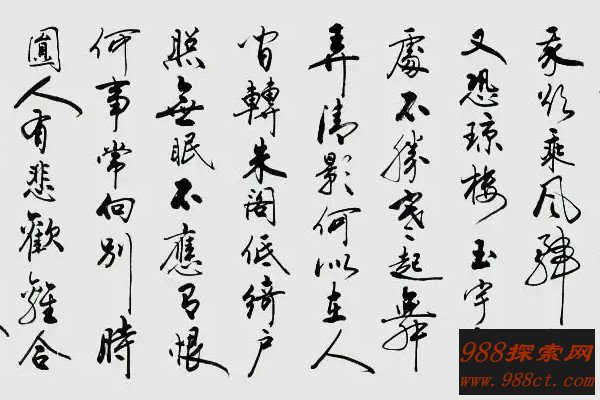 我欲乘風歸
又恐琼樓玉宇
處不勝寒起舞
弄清影何似在人
间轉朱閣低綺户
照無眠不應有恨
何事常向别時
圓人有悲歡離合
988探索网
www.988ct.com